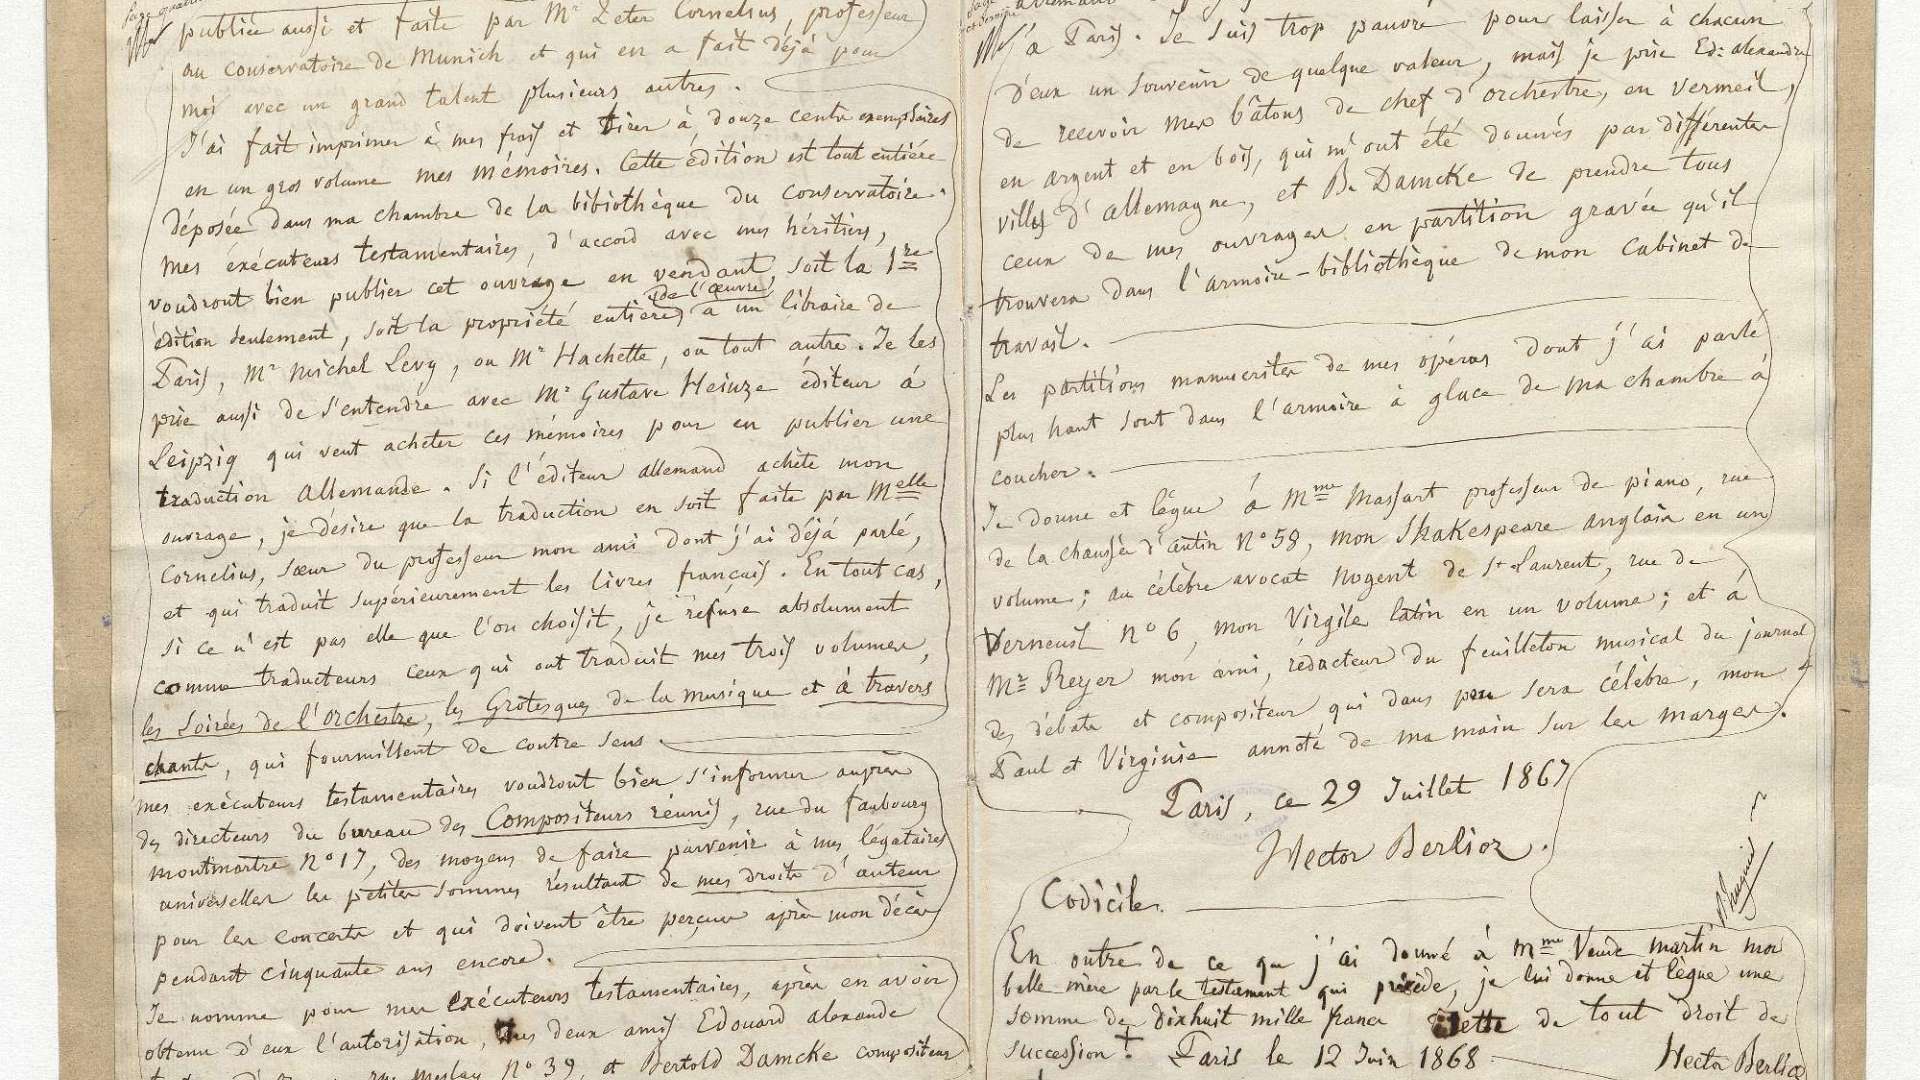 publiée aussi et faite par Mr Peter Cornelius, professeur
au conservatoire de Munich et qui en a fait déjà pour
moi avec un grand talent plusieurs autres.
J'ai fait imprimer à mes frais et tirer à douze cents exemplaires
en un gros volume mes mémoires. Cette édition est tout entière
déposée dans ma chambre de la bibiothèque du conservatoire.
Mes exécuteurs testamentaires, d'accord avec mes héritiers,
voudront bien publier cet ouvrage en vendant, soit la 1re
édition seulement, soit la propriété entière (de l'œuvre) à un libraire de
Paris, Mr Michel Levy, ou Mr Hachette, ou tout autre. Je les
prie aussi de s'entendre avec Mr Gustave Heinze éditeur à
Leipzig qui veut acheter ces mémoires pour en publier une
traduction Allemande. Si l'éditeur allemand achète mon
ouvrage, je désire que la traduction en soit faite par Melle
Cornelius, sœur du professeur mon ami dont j'ai déjà parlé,
et qui traduit supérieurement les livres français. En tout cas,
si ce n'est pas elle que l'on choisit, je refuse absolument
comme traducteurs ceux qui ont traduit mes trois volumes,
les Soirées de l'orchestre, les Grotesques de la musique et à travers
chants, qui fourmillent de contre sens.
Mes exécuteurs testamentaires voudront bien s'informer auprès
des directeurs du bureau des Compositeurs réunis, rue du faubourg
montmartre No 17, des moyens de faire parvenir à mes légataires
universelles les petites sommes résultant de mes droits d'auteur
pour les concerts et qui doivent être perçues après mon décès
pendant cinquante ans encore.
Je nomme pour mes exécuteurs testamentaires, après en avoir
obtenu d'eux l'autorisation, mes deux amis Edouard alexandre
rue Meslay No 39, et Bertold Damcke compositeur
à Paris. Je suis trop pauvre pour laisser à chacun
d'eux un souvenir de quelque valeur, mais je prie Ed: alexandre
de recevoir mes bâtons de chef d'orchestre, en vermeil,
en argent et en bois, qui m'ont été donnés par différentes
villes d'allemagne, et B. Damcke de prendre tous
ceux de mes ouvrages en partition gravée qu'il
trouvera dans l'armoire-bibliothèque de mon cabinet de
travail.
Les partitions manuscrites de mes opéras dont j'ai parlé
plus haut sont dans l'armoire à glace de ma chambre à
coucher.
Je donne et lègue à Mme Massart professeur de piano, rue
de la chaussée d'antin No 58, mon Shakespeare anglais en un
volume; au célèbre avocat Nogent de St Laurent, rue de
Verneuil No 6, mon Virgile latin en un volume; et à
Mr Reyer mon ami, rédacteur du feuilleton musical du journal
des débats et compositeur qui dans peu sera célèbre, mon
Paul et Virginie annoté de ma main sur les marges.
Paris, ce 29 Juillet 1867
Hector Berlioz.
Codicile.
En outre de ce que j'ai donné à Mme Veuve martin ma
belle mère par le testament qui précède, je lui donne et lègue une
somme de dixhuit mille francs nette de tout droit de
succession. Paris le 12 Juin 1868
Hector Berlioz